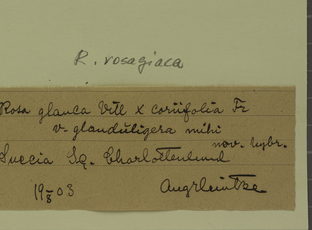 R. rosagiaca
Rosa glauca Vill x coriifolia Fr
v. glanduligera mihi
nov. hybr.
Suecia Sq. Charlottenlund
19 8 03